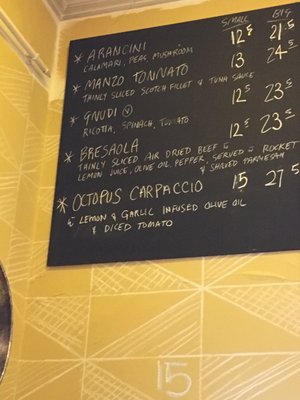 SMALL BIG
* ARANCINI 12⁵ 21⁵
CALAMARI, PEAS, MUSHROOM
* MANZO TONNATO 13 24⁵
THINLY SLICED SCOTCH FILLET & TUNA SAUCE
* GNUDI Ⓥ 12⁵ 23⁵
RICOTTA, SPINACH, TOMATO
* BRESAOLA 12⁵ 23⁵
THINLY SLICED AIR DRIED BEEF &
LEMON JUICE, OLIVE OIL, PEPPER, SERVED & ROCKET
& SHAVED PARMESAN
* OCTOPUS CARPACCIO 15 27⁵
& LEMON & GARLIC INFUSED OLIVE OIL
& DICED TOMATO
15